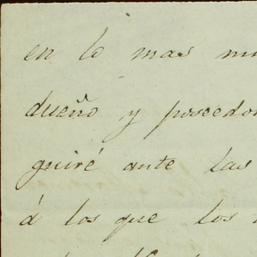 en lo mas
dueño y poseedo
guiré ante las
á los que los